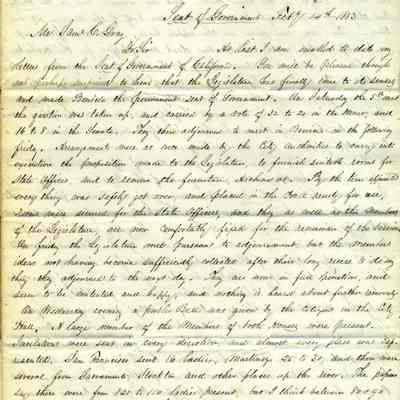 Seat of Government Feby 14th 1853
Mr. Saml C. Gray
Dr Sir At last I am enabled to date my
letters from the Seat of Government of California. You will be pleased though
not perhaps surprised to learn that the Legislature has finally come to its senses
and made Benicia the permanent seat of Government. On Saturday the 5th inst
the question was taken up, and carried by a vote of 32 to 20 in the House, and
16 to 8 in the Senate. They then adjourned to meet in Benicia on the following
friday. Arrangements were at once made by the City Authorities to carry into
execution the proposition made to the Legislature, to furnish suitable rooms for
State Officers, and to remove the furniture, Archives &c. By the time appointed
everything was safely got over, and placed in the State ready for use,
Rooms were secured for the State Officers, and they as well as the Members
of the Legislature, are now comfortably fixed for the remainder of the Session
On friday the Legislature met pursuant to adjournment but the members
not having become sufficiently collected after their long recess to do any
thing they adjourned to the next day. They are now in full operation, and
seem to be contented and happy, and nothing is heard about further removal
On Wednesday evening a public Ball was given by the Citizens in the City
Hall. A large number of the Members of both houses were present.
Invitations were sent in every direction and almost every place was rep-
resented. San Francisco sent 60 ladies, Martinez 25 to 30 and there were
several from Sacramento, Stockton and other places up the river. The papers
say there were from 120 to 150 ladies present, but I think between 80 & 90